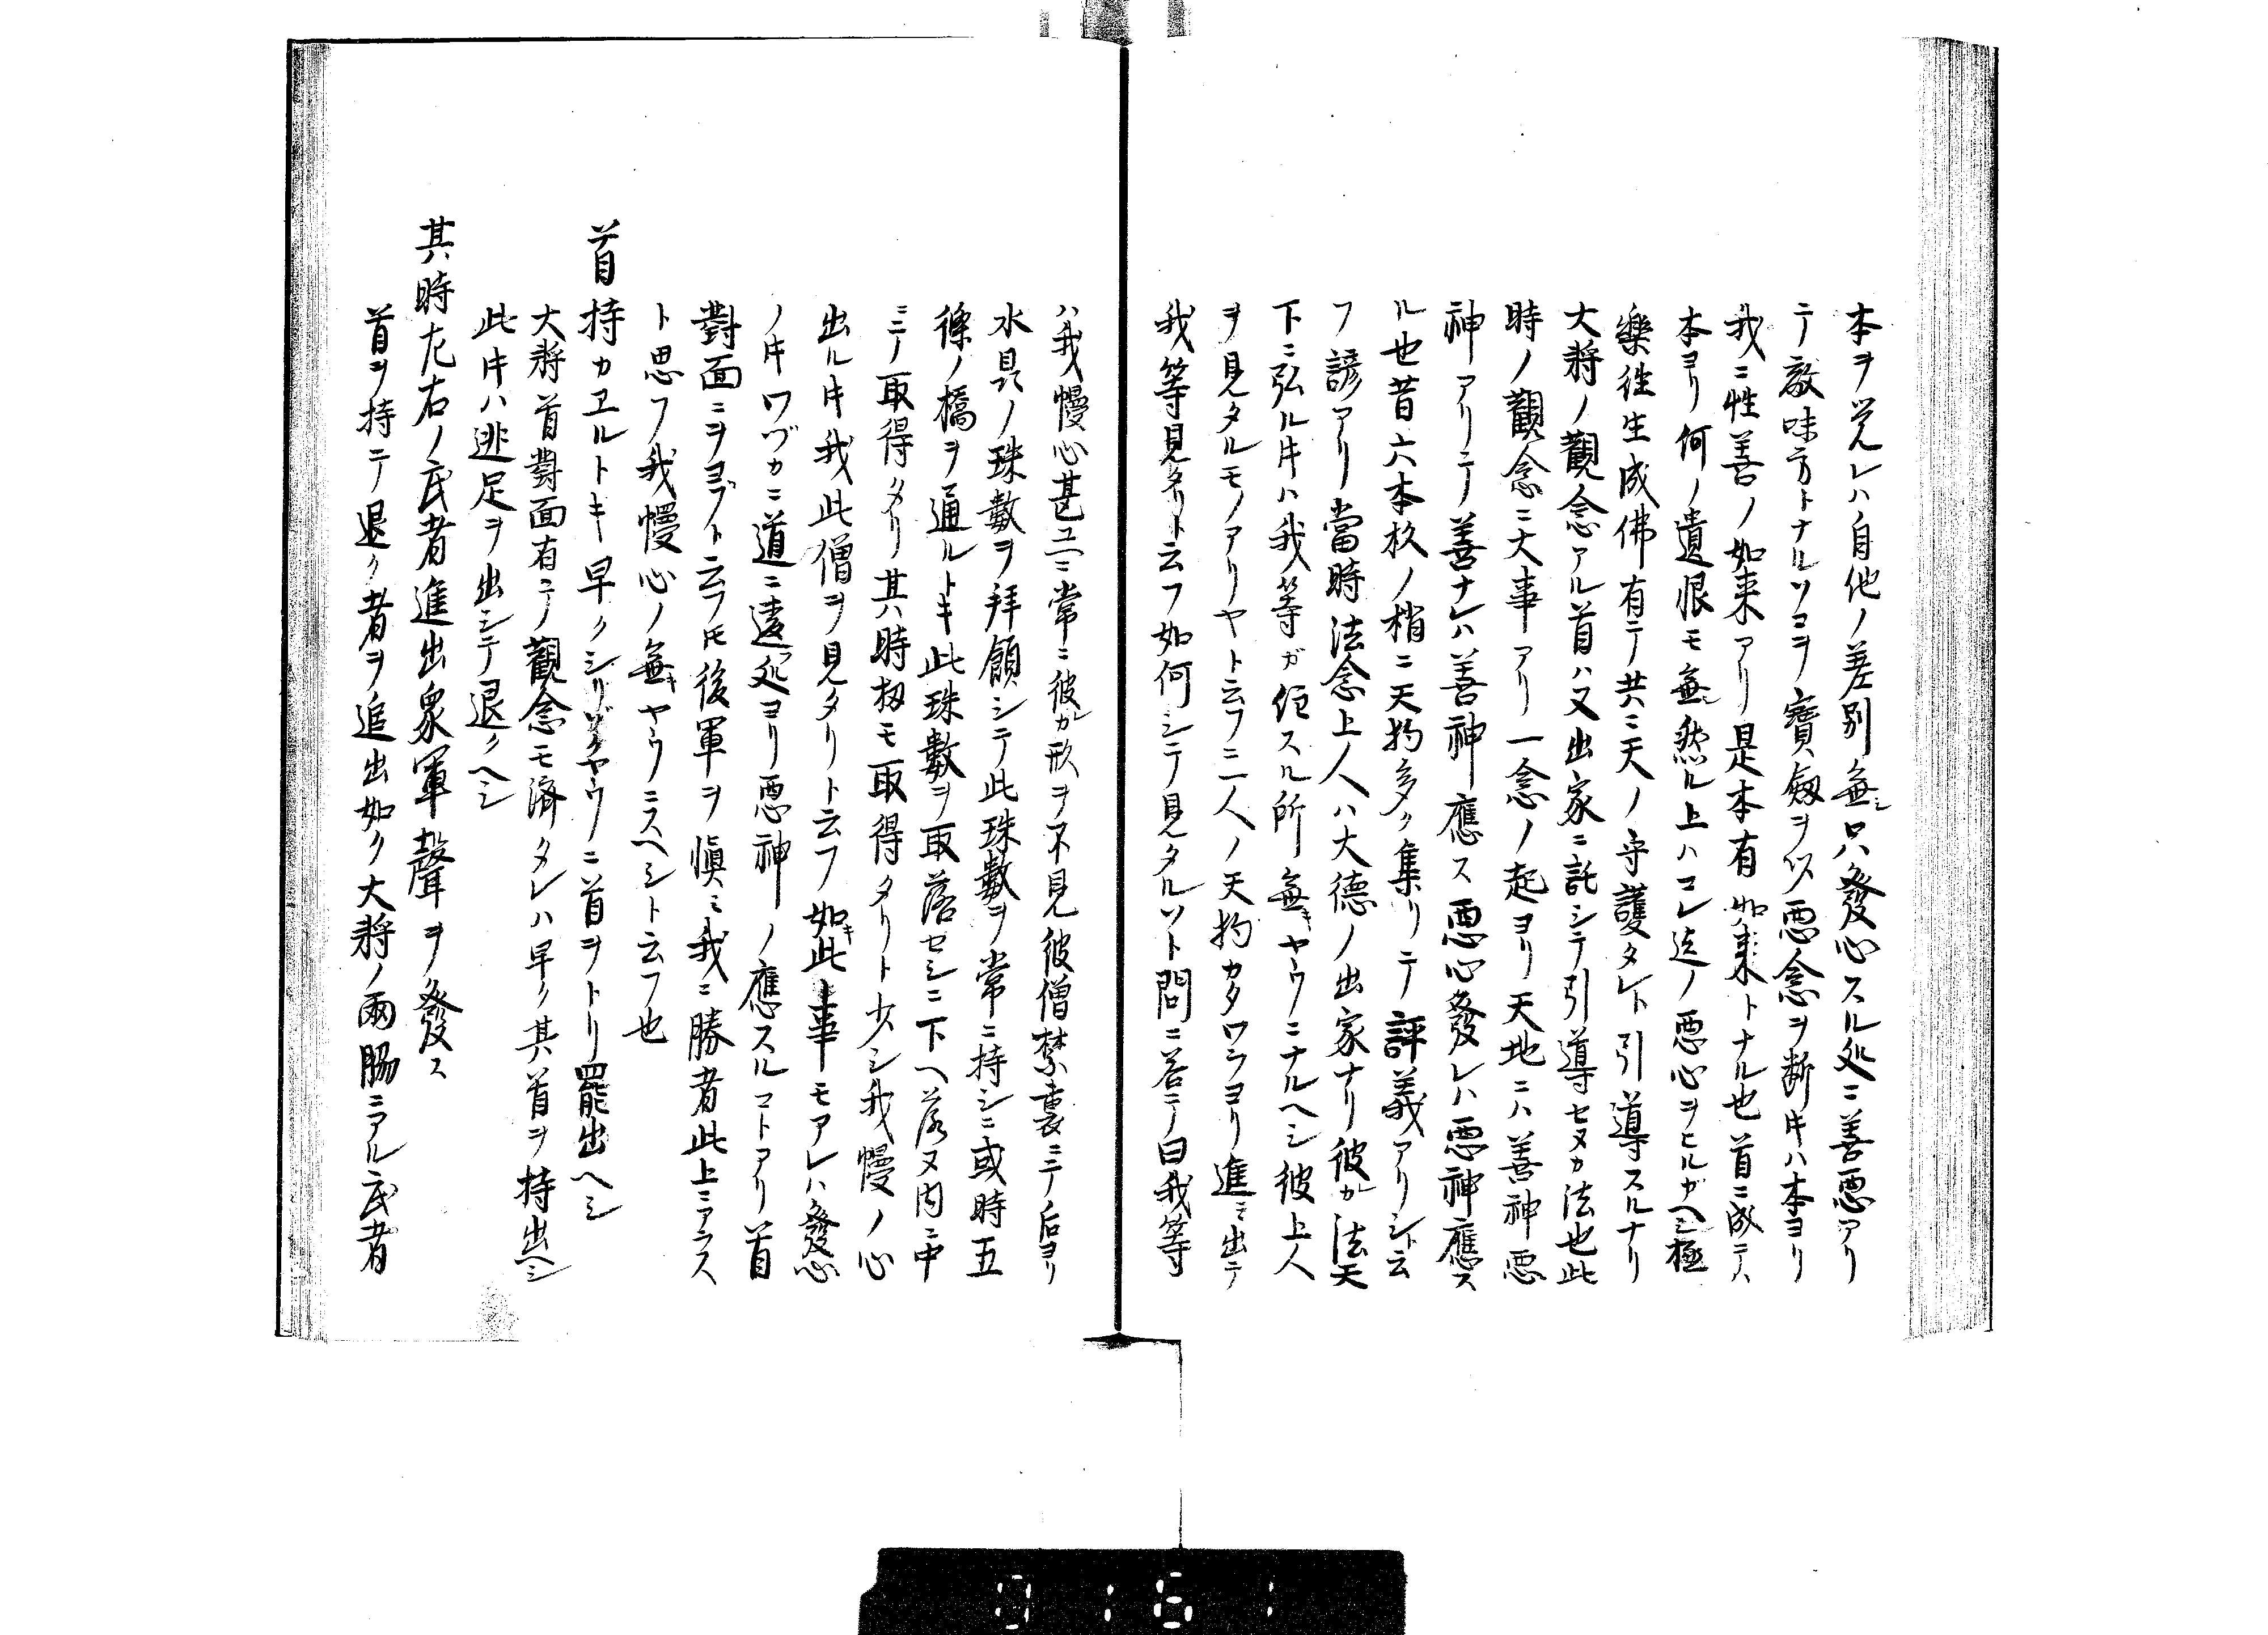 本ヲ覚レハ自他ノ差別無シ只發心スル処ニ善悪アリ
テ敵味方トナルソコヲ寳劔ヲ以悪念ヲ断キハ本ヨリ
我ニ性善ノ如来アリ是本有如来トナル也首ニ成テハ
本ヨリ何ノ遺恨モ無シ然ル上ハコレ迄ノ悪心ヲヒルガヘシ極
樂徃生成佛有テ共ニ天ノ守護タレト引導スルナリ
大將ノ觀念アル首ハ又出家ニ託シテ引導セヌカ法也此
時ノ觀念ニ大事アリ一念ノ起ヨリ天地ニハ善神悪
神アリテ善ナレハ善神應ス悪心發レハ悪神應ス
ル也昔六本杦ノ梢ニ天狗多ク集リテ評義アリシト云
フ諺アリ當時法念上人ハ大德ノ出家ナリ彼カ法天
下ニ弘ル片ハ我等ガ住スル所無キヤウニナルヘシ彼上人
ヲ見タルモノアリヤト云フ二人ノ天狗カタワラヨリ進ミ出テ
我等見タリト云フ如何シテ見タルソト問ニ答テ曰我等
ハ我慢心甚ユヘニ常ニ彼カ形ヲ不見彼僧禁裏ニテ后ヨリ
水晶ノ珠數ヲ拜領シテ此珠數ヲ常ニ持シニ或時五
條ノ橋ヲ通ルトキ此珠數ヲ取落セシニ下ヘ落ヌ内ニ中
ニテ取得タリ其時扨モ取得タリト少シ我慢ノ心
出ル片我此僧ヲ見タリト云フ如キ此事モアレハ發心
ノ片ワヅカニ道ニ違フ処ヨリ悪神ノ應スルコトアリ首
對面ニヲヨブト云フ圧後軍ヲ愼ミ我ニ勝者此上ミアラス
ト思フ我慢心ノ無キヤウニスヘシト云フ也
首持カヱルトキ早クシリゾクヤウニ首ヲトリ罷出ヘシ
大將首對面有テノ觀念モ済タレハ早ク其首ヲ持出ヘシ
此片ハ逃足ヲ出シテ退クヘシ
其時左右ノ武者進出衆軍聲ヲ發ス
首ヲ持テ退ク者ヲ追出如ク大將ノ兩脇ニアル武者